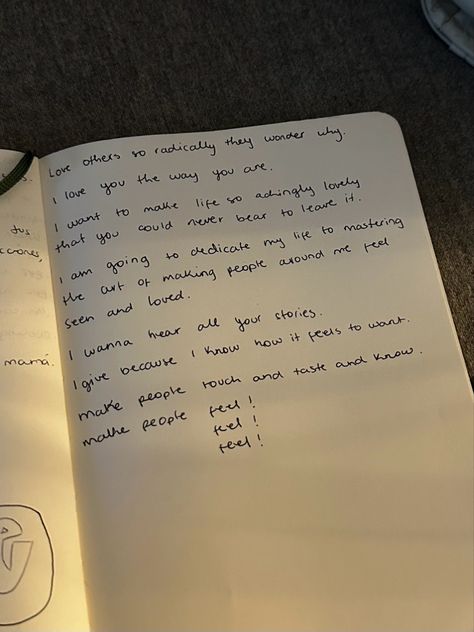 s.
tus
cciones,
mamá.
Love others so radically they wonder why.
I love you the way you are.
I want to make life so achingly lovely
that you could never bear to leave it.
I am going to dedicate my life to mastering
the art of making people around me feel
seen and loved.
I wanna hear all your stories.
I give because I know how it feels to want.
make people touch and taste and know.
make people feel!
feel!
feel!